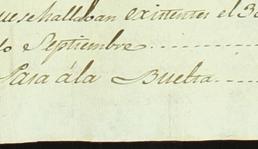 que se hallavan existentes el 30
do Septiembre
Pasa á la Buelta